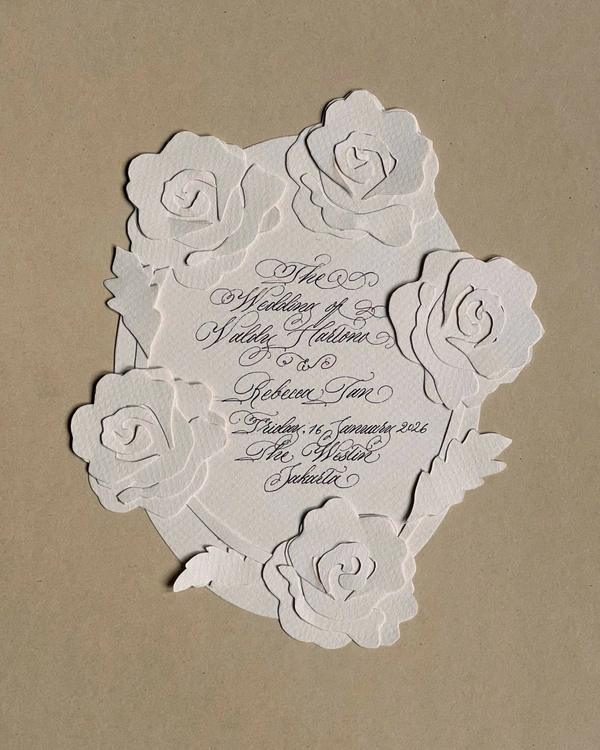 The
Wedding of
Waldy Hartono
&
Rebecca Tan
Friday, 16 January 2026
The Westin
Jakarta